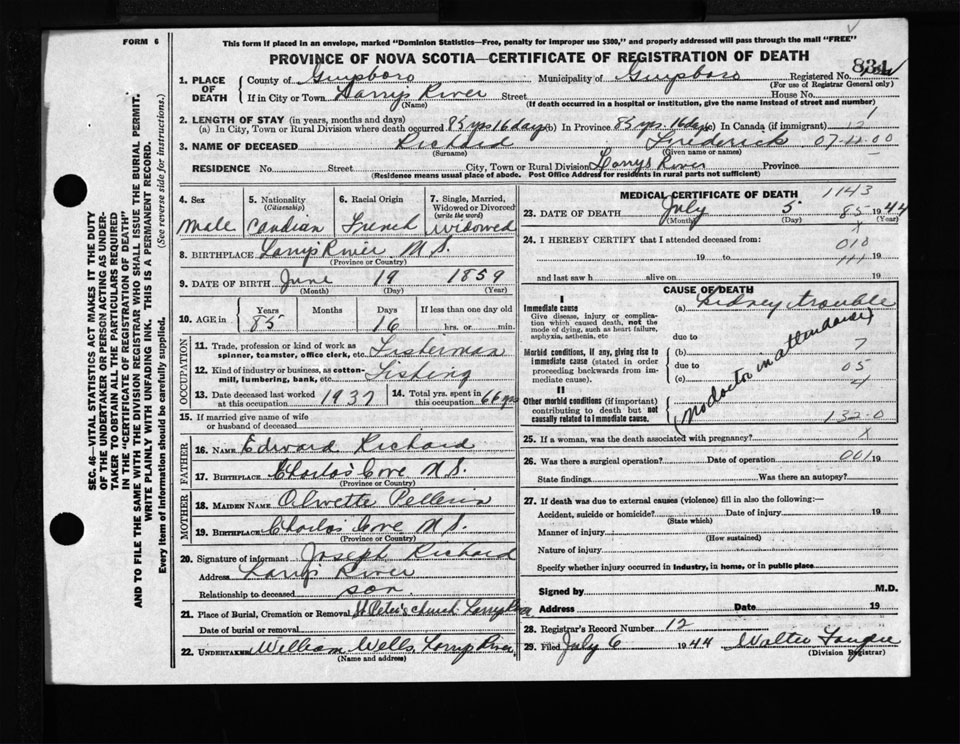 FORM 6
This form if placed in an envelope, marked "Dominion Statistics—Free, penalty for improper use $300," and properly addressed will pass through the mail "FREE"
PROVINCE OF NOVA SCOTIA—CERTIFICATE OF REGISTRATION OF DEATH
834
1. PLACE OF DEATH
County of Guysboro Municipality of Guysboro Registered No.
(For use of Registrar General only)
If in City or Town Larrys River Street House No.
(Name) (If death occurred in a hospital or institution, give the name instead of street and number)
2. LENGTH OF STAY (in years, months and days)
(a) In City, Town or Rural Division where death occurred 85 yrs 16 days (b) In Province 85 yrs 16 days (c) In Canada (if immigrant)
3. NAME OF DECEASED Richard Frederick 07-11-00
(Surname) (Given name or names)
RESIDENCE No. Street City, Town or Rural Division Larrys River Province
(Residence means usual place of abode. Post Office Address for residents in rural parts not sufficient)
4. Sex
Male
5. Nationality (Citizenship)
Candian
6. Racial Origin
French
7. Single, Married, Widowed or Divorced (write the word)
Widowed
8. BIRTHPLACE Larrys River N.S.
(Province or Country)
9. DATE OF BIRTH June 19 1859
(Month) (Day) (Year)
10. AGE in Years Months Days If less than one day old
85 16 hrs. or min.
OCCUPATION
11. Trade, profession or kind of work as spinner, teamster, office clerk, etc. Fisherman
12. Kind of industry or business, as cotton-mill, lumbering, bank, etc. Fishing
13. Date deceased last worked at this occupation 1937
14. Total yrs. spent in this occupation 66 yrs
15. If married give name of wife or husband of deceased
FATHER
16. NAME Edward Richard
17. BIRTHPLACE Charlos Cove N.S.
(Province or Country)
MOTHER
18. MAIDEN NAME Olwette Pellerin
19. BIRTHPLACE Charlos Cove N.S.
(Province or Country)
20. Signature of informant Joseph Richard
Address Larrys River
Relationship to deceased son
21. Place of Burial, Cremation or Removal St Peter's church Larrys River
Date of burial or removal
22. UNDERTAKER William Wells Larrys River
(Name and address)
MEDICAL CERTIFICATE OF DEATH
1143
23. DATE OF DEATH July 5 85 1944
(Month) (Day) (Year)
24. I HEREBY CERTIFY that I attended deceased from:
010
19 to 19
and last saw h alive on 19
CAUSE OF DEATH
I
Immediate cause
Give disease, injury or complication which caused death, not the mode of dying, such as heart failure, asphyxia, asthenia, etc
(a) Kidney trouble
due to
Morbid conditions, if any, giving rise to immediate cause (stated in order proceeding backwards from immediate cause).
(b) 7
due to 05
(c)
II
Other morbid conditions (if important) contributing to death but not causally related to immediate cause.
(No doctor in attendance)
132-0
25. If a woman, was the death associated with pregnancy? X
26. Was there a surgical operation? Date of operation 001 19
State findings Was there an autopsy?
27. If death was due to external causes (violence) fill in also the following:—
Accident, suicide or homicide? Date of injury 19
(State which)
Manner of injury
(How sustained)
Nature of injury
Specify whether injury occurred in industry, in home, or in public place
Signed by M.D.
Address Date 19
28. Registrar's Record Number 12
29. Filed July 6 1944 Walter
(Division Registrar)
SEC. 46—VITAL STATISTICS ACT MAKES IT THE DUTY
OF THE UNDERTAKER OR PERSON ACTING AS UNDER-
TAKER TO OBTAIN ALL THE PARTICULARS REQUIRED
IN THE "CERTIFICATE OF REGISTRATION OF DEATH"
AND TO FILE THE SAME WITH THE DIVISION REGISTRAR WHO SHALL ISSUE THE BURIAL PERMIT.
WRITE PLAINLY WITH UNFADING INK. THIS IS A PERMANENT RECORD.
Every item of information should be carefully supplied. (See reverse side for instructions.)